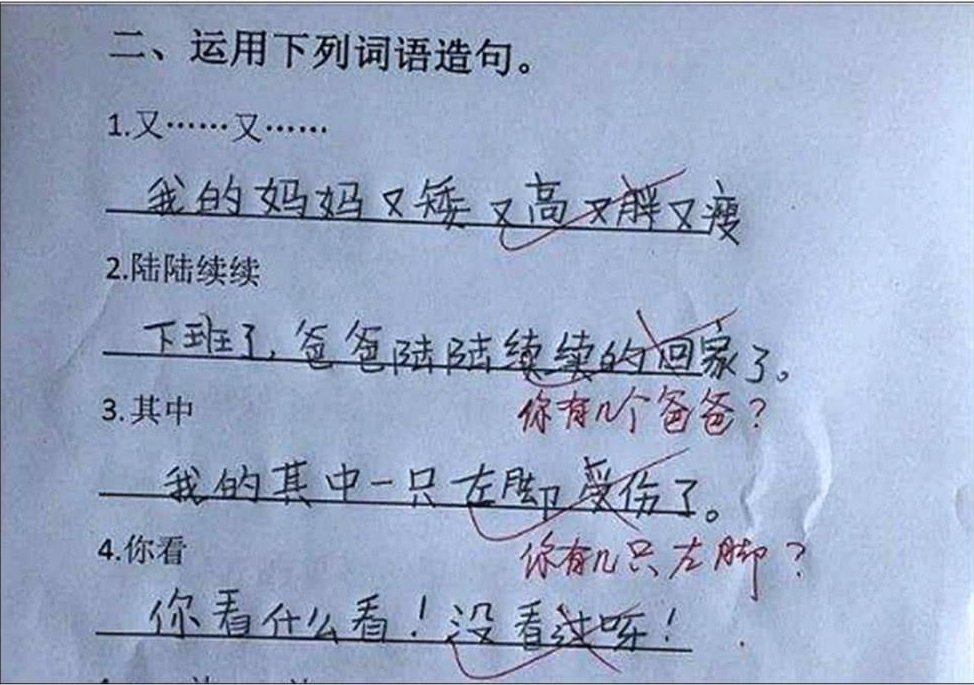 二、运用下列词语造句。
1.又……又……
我的妈妈又矮又高又胖又瘦
2.陆陆续续
下班了,爸爸陆陆续续的回家了。
3.其中
你有几个爸爸？
我的其中一只左脚受伤了。
4.你看
你有几只左脚？
你看什么看！没看过呀！